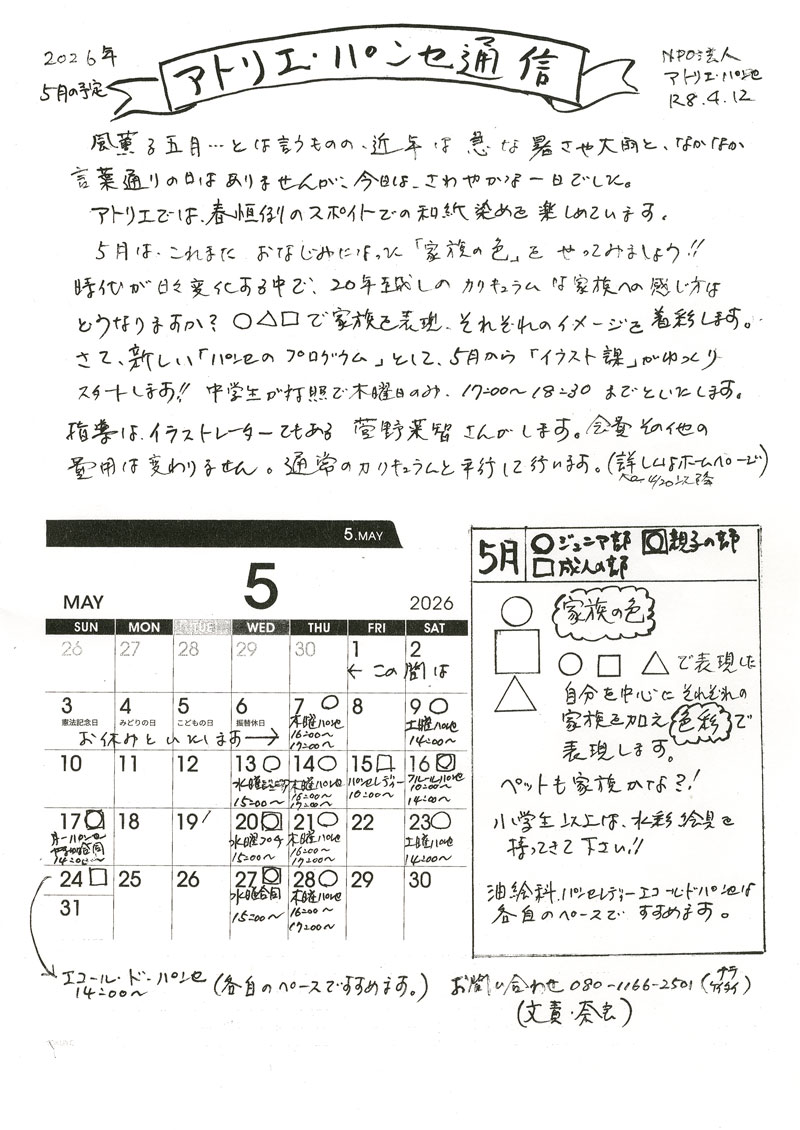 2026年
5月の予定
アトリエ・パンセ通信
NPO法人
アトリエ・パンセ
R8.4.12
風薫る五月…とは言うものの、近年は急な暑さや大雨と、なかなか
言葉通りの日はありませんが、今日は、さわやかな一日でした。
アトリエでは、春恒例のスポイトでの和紙染めを楽しめています。
5月は、これまた おなじみになった「家族の色」を やってみましょう!!
時代が日々変化ある中で、20年越しのカリキュラム な家族への感じ方は
どうなりますか? ○△□で家族を表現、それぞれのイメージを着彩します。
さて、新しい「パンセのプログラム」として、5月から「イラスト課」がゆっくり
スタートします!! 中学生が対照で木曜日のみ、17:00〜18:30 までといたします。
指導は、イラストレーターでもある 菅野菜智さんがします。会費その他の
費用は変わりません。通常のカリキュラムと平行して行います。(詳しくはホームページ)
4/20以降
5.MAY
MAY
5
2026
SUN MON TUE WED THU FRI SAT
26 27 28 29 30 1 2
← この間は
3 4 5 6 7○ 8 9○
憲法記念日 みどりの日 こどもの日 振替休日
お休みといたします →
木曜パンセ
16:00〜
17:00〜
土曜パンセ
14:00〜
10 11 12 13○ 14○ 15□ 16
水曜ジュニア
15:00〜
木曜パンセ
16:00〜
17:00〜
パンセレディー
10:00〜
フルールパンセ
10:00〜
14:00〜
17 18 19 20 21○ 22 23○
合同
14:00〜
水曜プチ
15:00〜
木曜パンセ
16:00〜
17:00〜
土曜パンセ
14:00〜
24□ 25 26 27 28○ 29 30
水曜合同
15:00〜
木曜パンセ
16:00〜
17:00〜
31
エコール・ド・パンセ
14:00〜
(各自のペースですすめます。)
5月
○ジュニア部 親子の部
□成人の部
家族の色
○ □ △で表現した
自分を中心にそれぞれの
家族を加え色彩で
表現します。
ペットも家族かな?!
小学生以上は、水彩絵具を
持ってきて下さい!!
油絵科、パンセレディーエコールドパンセは
各自のペースですすめます。
お問い合わせ 080-1166-2501 (ナラ
ケイタイ)
(文責・奈良)